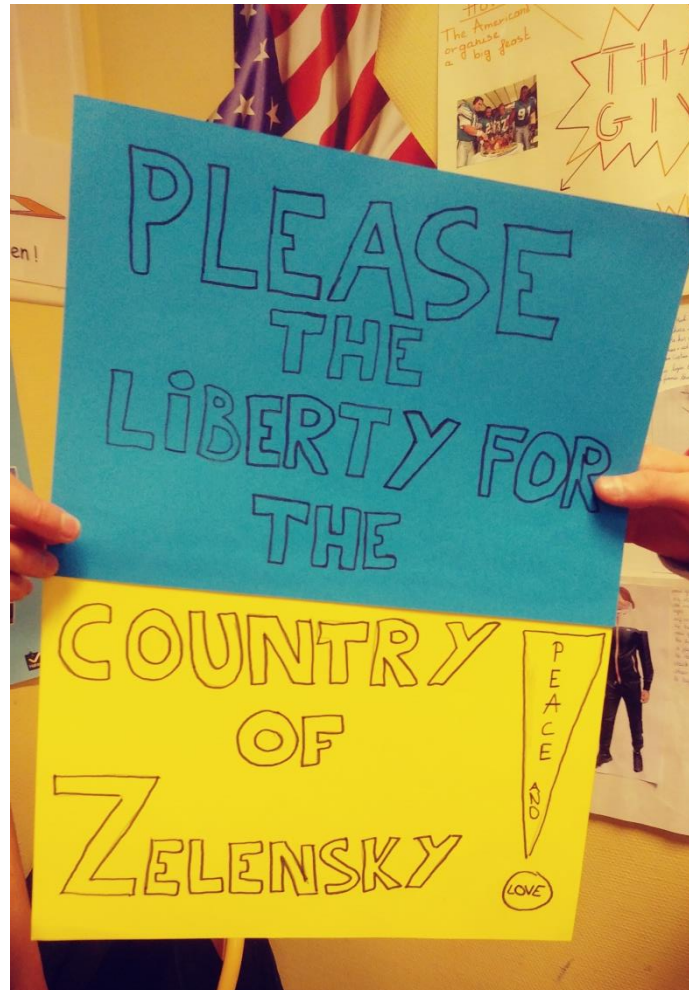 The Americans
organise
a big feast
en!
PLEASE
THE
LiBERTY FOR
THE
COUNTRY
OF
ZELENSKY
PEACE AND
LOVE